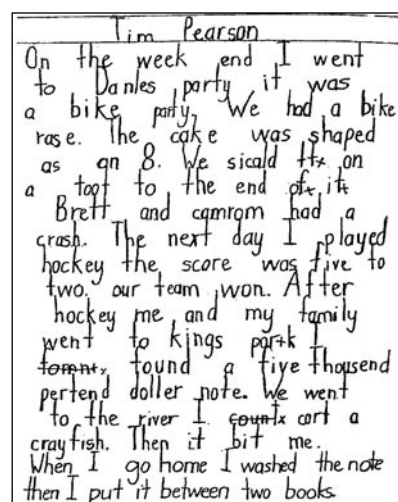 Tim Pearson
On the week end I went
to Danles party it was
a bike party. We had a bike
rase. The cake was shaped
as an 8. We sicald on
a toot to the end of it
Brett and camrom had a
crash. The next day I played
hockey the score was five to
two. our team won. After
hockey me and my family
went to kings park I
found a five thousend
pertend doller note. We went
to the river I cort a
crayfish. Then it bit me.
When I go home I washed the note
then I put it between two books.